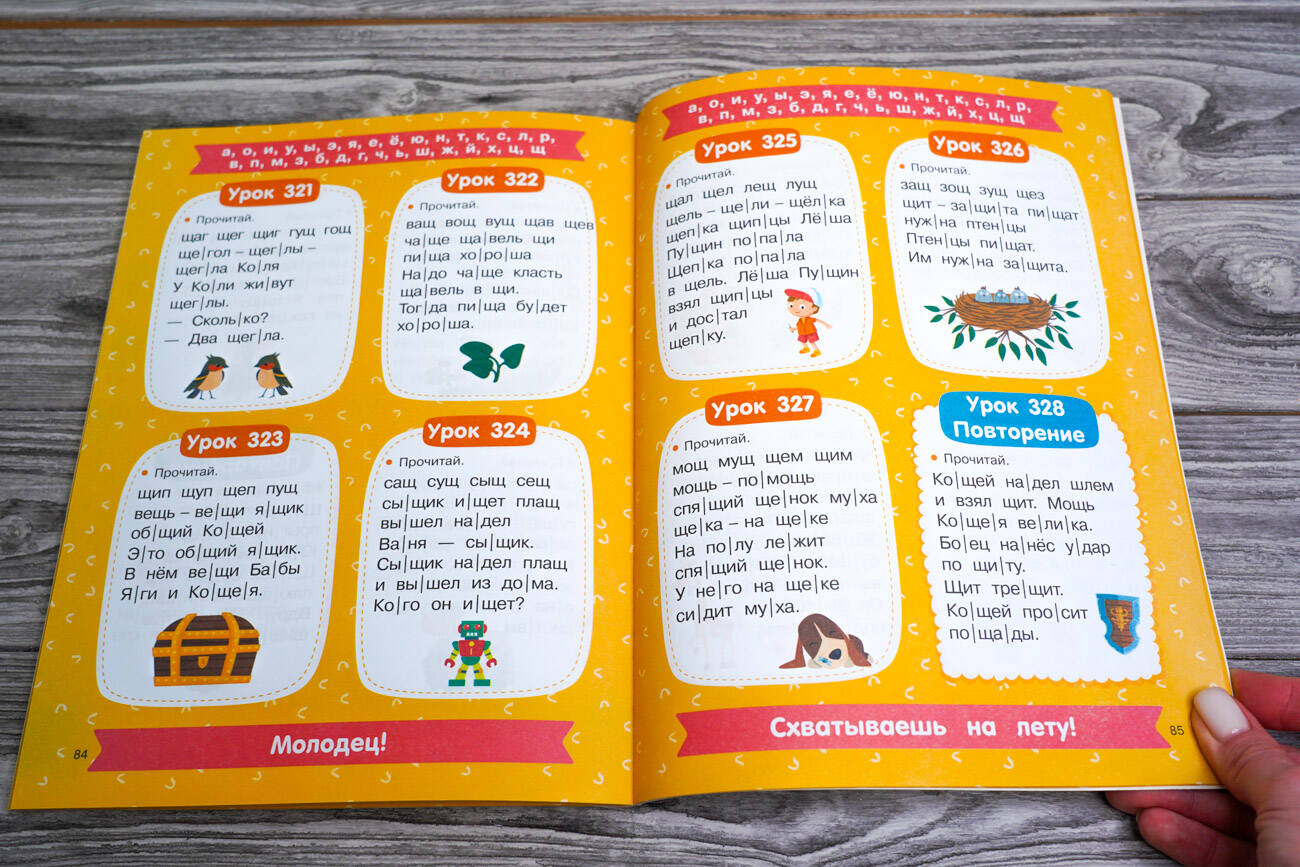 а, о, и, у, ы, э, я, е, ё, ю, н, т, к, с, л, р,
в, п, м, з, б, д, г, ч, ь, ш, ж, й, х, ц, щ
Урок 321
Прочитай.
щаг щег щиг гущ гощ
ще|гол – щег|лы –
щег|ла Ко|ля
У Ко|ли жи|вут
щег|лы.
— Сколь|ко?
— Два щег|ла.
Урок 322
Прочитай.
ващ вощ вущ щав щев
ча|ще ща|вель щи
пи|ща хо|ро|ша
На|до ча|ще класть
ща|вель в щи.
Тог|да пи|ща бу|дет
хо|ро|ша.
Урок 323
Прочитай.
щип щуп щеп пущ
вещь – ве|щи я|щик
об|щий Ко|щей
Э|то об|щий я|щик.
В нём ве|щи Ба|бы
Я|ги и Ко|ще|я.
Урок 324
Прочитай.
сащ сущ сыщ сещ
сы|щик и|щет плащ
вы|шел на|дел
Ва|ня — сы|щик.
Сы|щик на|дел плащ
и вы|шел из до|ма.
Ко|го он и|щет?
Молодец!
84
а, о, и, у, ы, э, я, е, ё, ю, н, т, к, с, л, р,
в, п, м, з, б, д, г, ч, ь, ш, ж, й, х, ц, щ
Урок 325
Прочитай.
щал щел лещ лущ
щель – ще|ли – щёл|ка
щеп|ка щип|цы Лё|ша
Пу|щин по|па|ла
Щеп|ка по|па|ла
в щель. Лё|ша Пу|щин
взял щип|цы
и дос|тал
щеп|ку.
Урок 326
Прочитай.
защ зощ зущ щез
щит – за|щи|та пи|щат
нуж|на птен|цы
Птен|цы пи|щат.
Им нуж|на за|щита.
Урок 327
Прочитай.
мощ мущ щем щим
мощь – по|мощь
спя|щий ще|нок му|ха
ще|ка – на ще|ке
На по|лу ле|жит
спя|щий ще|нок.
У не|го на ще|ке
си|дит му|ха.
Урок 328
Повторение
Прочитай.
Ко|щей на|дел шлем
и взял щит. Мощь
Ко|ще|я ве|ли|ка.
Бо|ец на|нёс у|дар
по щи|ту.
Щит тре|щит.
Ко|щей про|сит
по|ща|ды.
Схватываешь на лету!
85